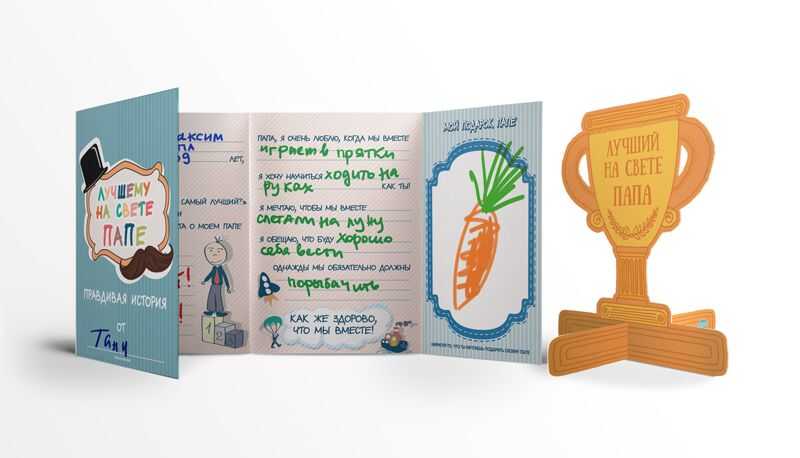 ЛУЧШЕМУ
НА СВЕТЕ
ПАПЕ
ПРАВДИВАЯ ИСТОРИЯ
ОТ
Тани
ЛЕТ,
САМЫЙ ЛУЧШИЙ?»
А О МОЕМ ПАПЕ
1 2
ПАПА, Я ОЧЕНЬ ЛЮБЛЮ, КОГДА МЫ ВМЕСТЕ
играем в прятки
Я ХОЧУ НАУЧИТЬСЯ ходить на
руках КАК ТЫ!
Я МЕЧТАЮ, ЧТОБЫ МЫ ВМЕСТЕ
слетали на луну
Я ОБЕЩАЮ, ЧТО БУДУ хорошо
себя вести
ОДНАЖДЫ МЫ ОБЯЗАТЕЛЬНО ДОЛЖНЫ
порыбачить
КАК ЖЕ ЗДОРОВО,
ЧТО МЫ ВМЕСТЕ!
МОЙ ПОДАРОК, ПАПЕ
ЛУЧШИЙ
НА СВЕТЕ
ПАПА